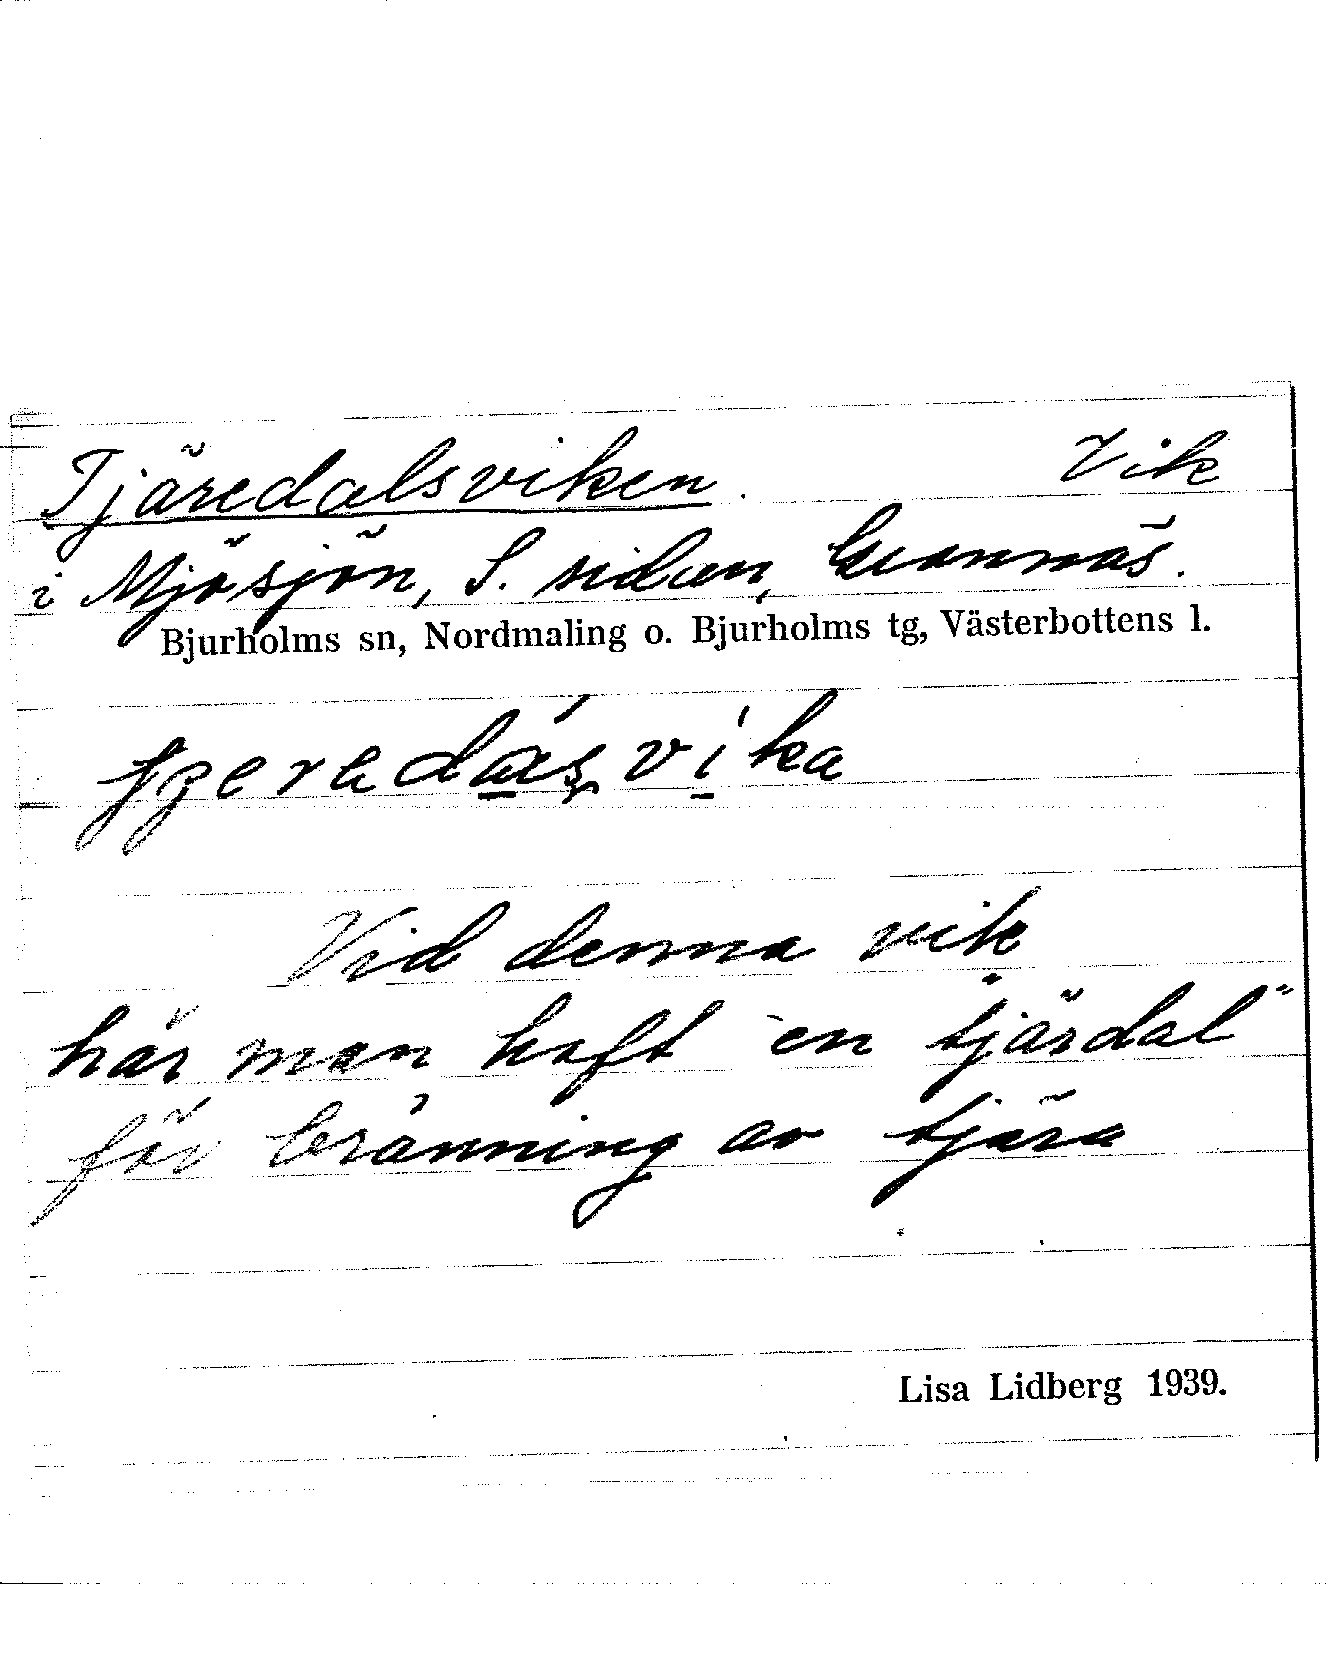 Tjäredalsviken. Vik
i Mjösjön, S. sidan, Brännäs.
Bjurholms sn, Nordmaling o. Bjurholms tg, Västerbottens l.
Vid denna vik
här man haft en "tjärdal"
för bränning av tjära
Lisa Lidberg 1939.